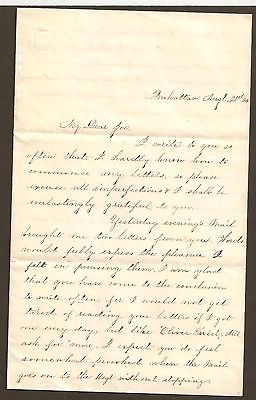 Powhattan Augt. 21st
My Dear Joe.
I write to you so
often that I hardly know how to
commence my letters, so please
excuse all imperfections & I shall be
everlastingly grateful to you.
Yesterday evening's Mail
brought me two letters from you. Words
would feebly express the pleasure I
felt in perusing them. I am glad
that you have come to the conclusion
to write often, for I would not get
tired of reading your letters if I got
one every day, but like "Oliver Twist" still
ask for "more. I expect you do feel
somewhat provoked when the Mail
goes on to the Regt without stopping.